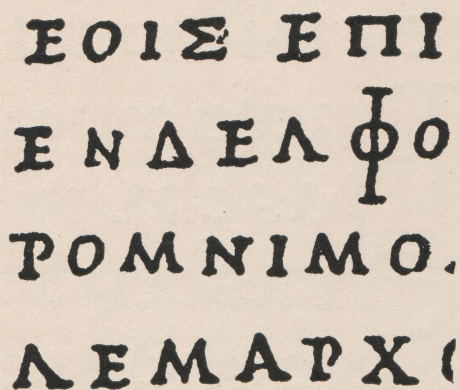 ΕΟΙΣ ΕΠΙ
ΕΝΔΕΛΦΟ
ΡΟΜΝΙΜΟ
ΛΕΜΑΡΧΟ